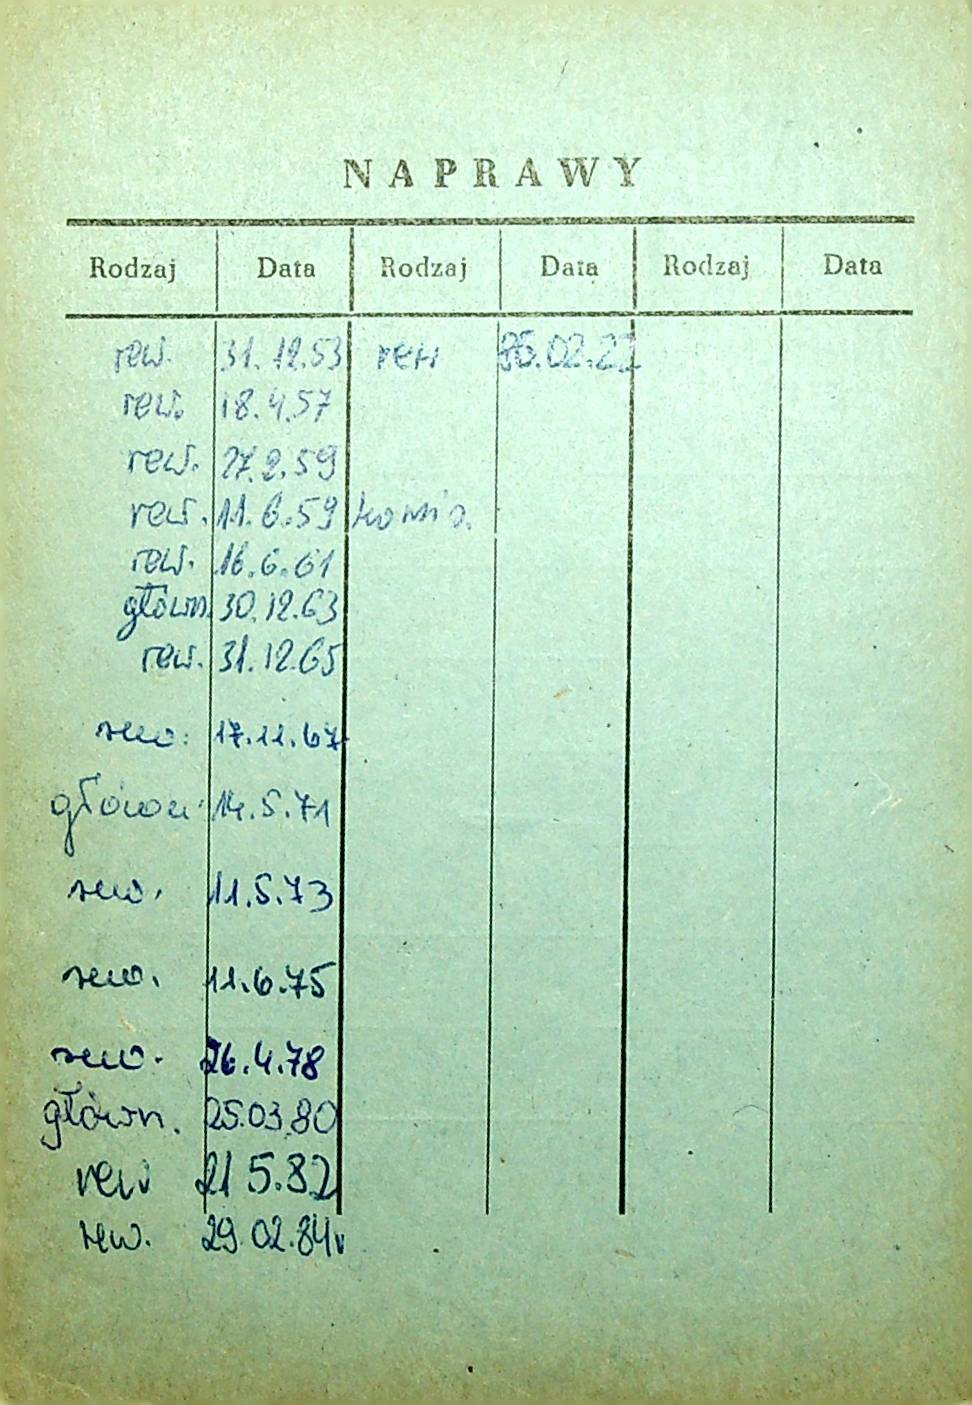 NAPRAWY
Rodzaj Data Rodzaj Data Rodzaj Data
rew. 31.12.53 rew 86.02.22
rew. 18.4.57
rew. 27.2.59
rew. 11.6.59
rew. 16.6.61
główn. 30.12.63
rew. 31.12.65
rew. 17.11.67
główn. 14.5.71
rew. 11.5.73
rew. 11.6.75
rew. 26.4.78
główn. 25.03.80
rew 21 5.82
rew. 29.02.84r